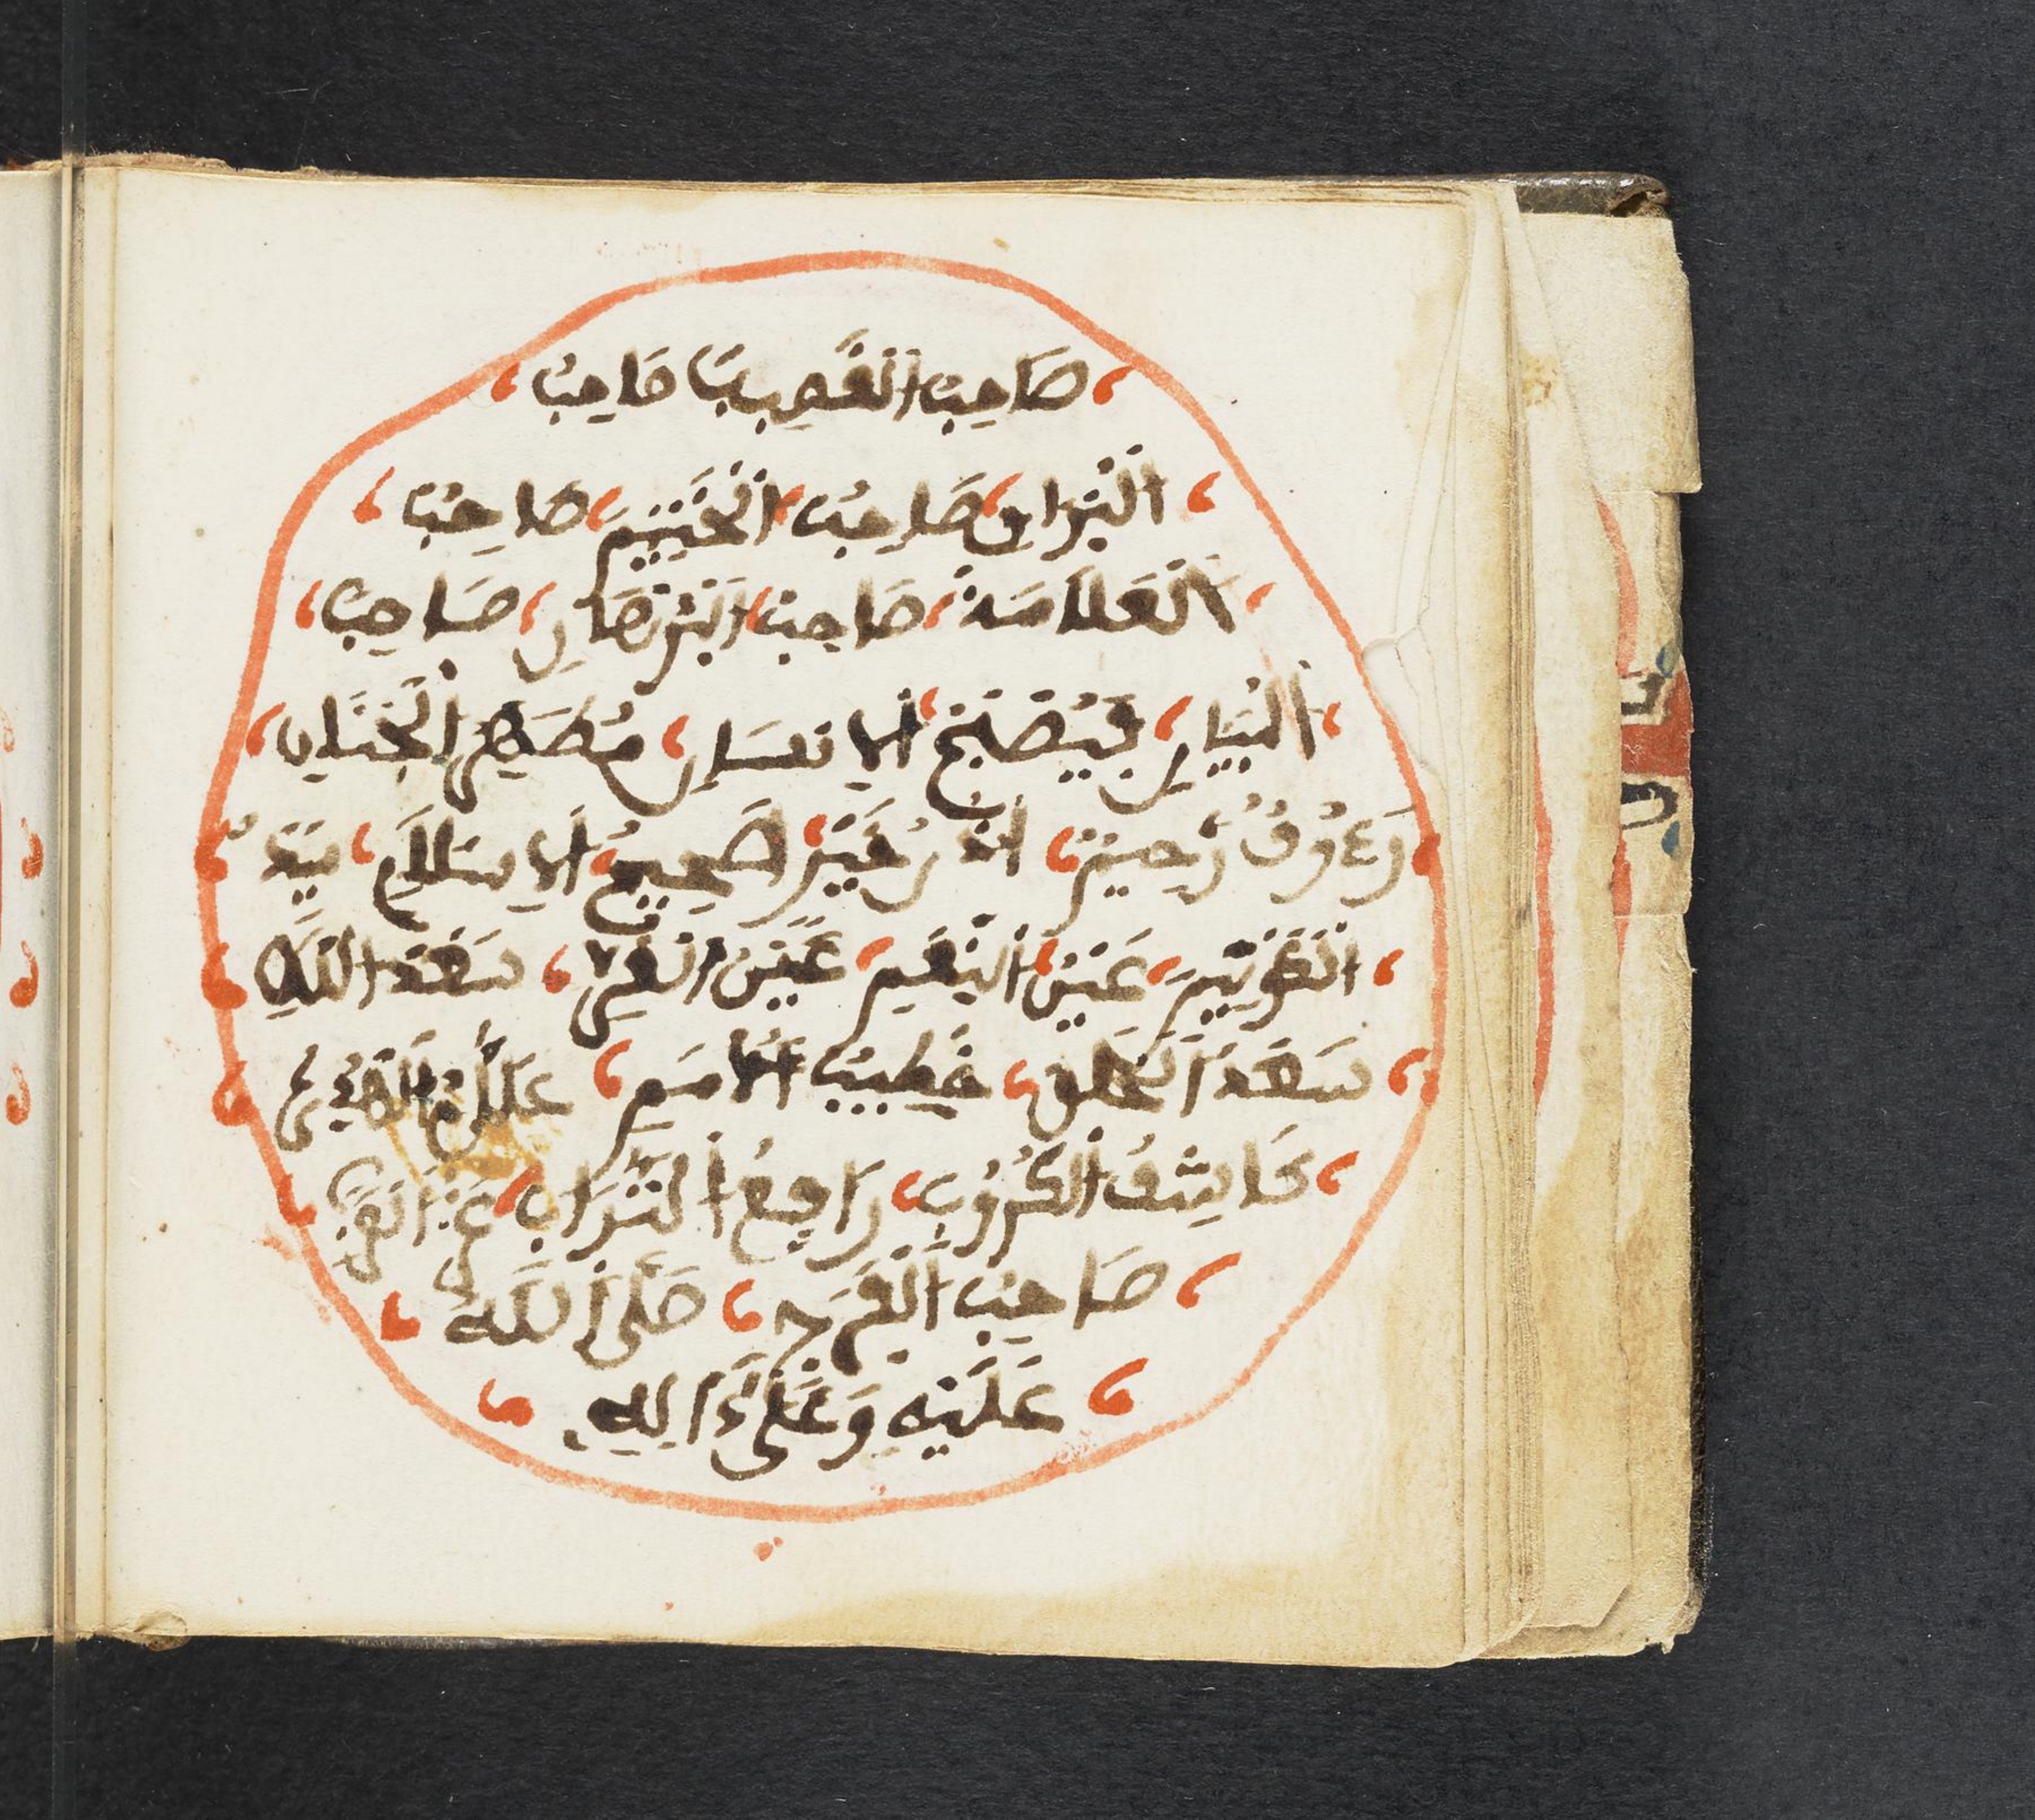 صَاحِبُ الْقَضِيبِ صَاحِبُ
الْبُرَاقِ صَاحِبُ الْخَتَمِ صَاحِبُ
الْعَلَامَةِ صَاحِبُ الْبُرْهَانِ صَاحِبُ
الْبَيَانِ فَصِيحُ الْلِسَانِ مُطَهَّرُ الْجَنَانِ
رَءُوفٌ رَحِيمٌ اذُنُ خَيْرٍ صَحِيحُ الْاِسْلَامِ سَيِّدُ
الْكَوْنَيْنِ عَيْنُ النَّعِيمِ عَيْنُ الْغُرِّ سَعْدُ اللَّهِ
سَعْدُ الْخَلْقِ خَطِيبُ الْأُمَمِ عَلَمُ الْهُدَى
كَاشِفُ الْكُرُوبِ رَافِعُ الرُّتَبِ عِزُّ الْعَرَبِ
صَاحِبُ الْفَرَجِ صَلَّى اللَّهُ
عَلَيْهِ وَعَلَى ءَالِهِ